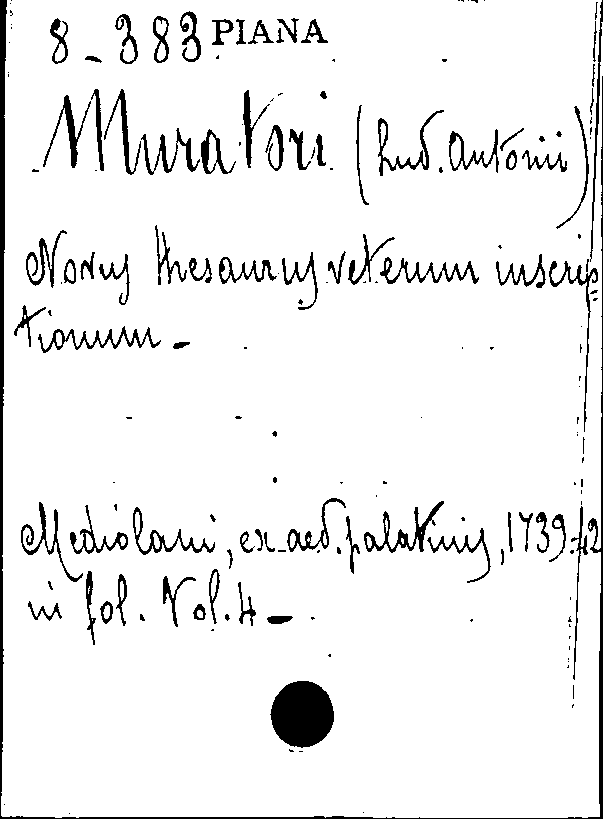 8-383 PIANA
Muratori (Lud. Antonii)
Novus thesaurus veterum inscrip=
tionum -
Mediolani, ex aed. palatinis, 1739-42
in fol. Vol. 4 -